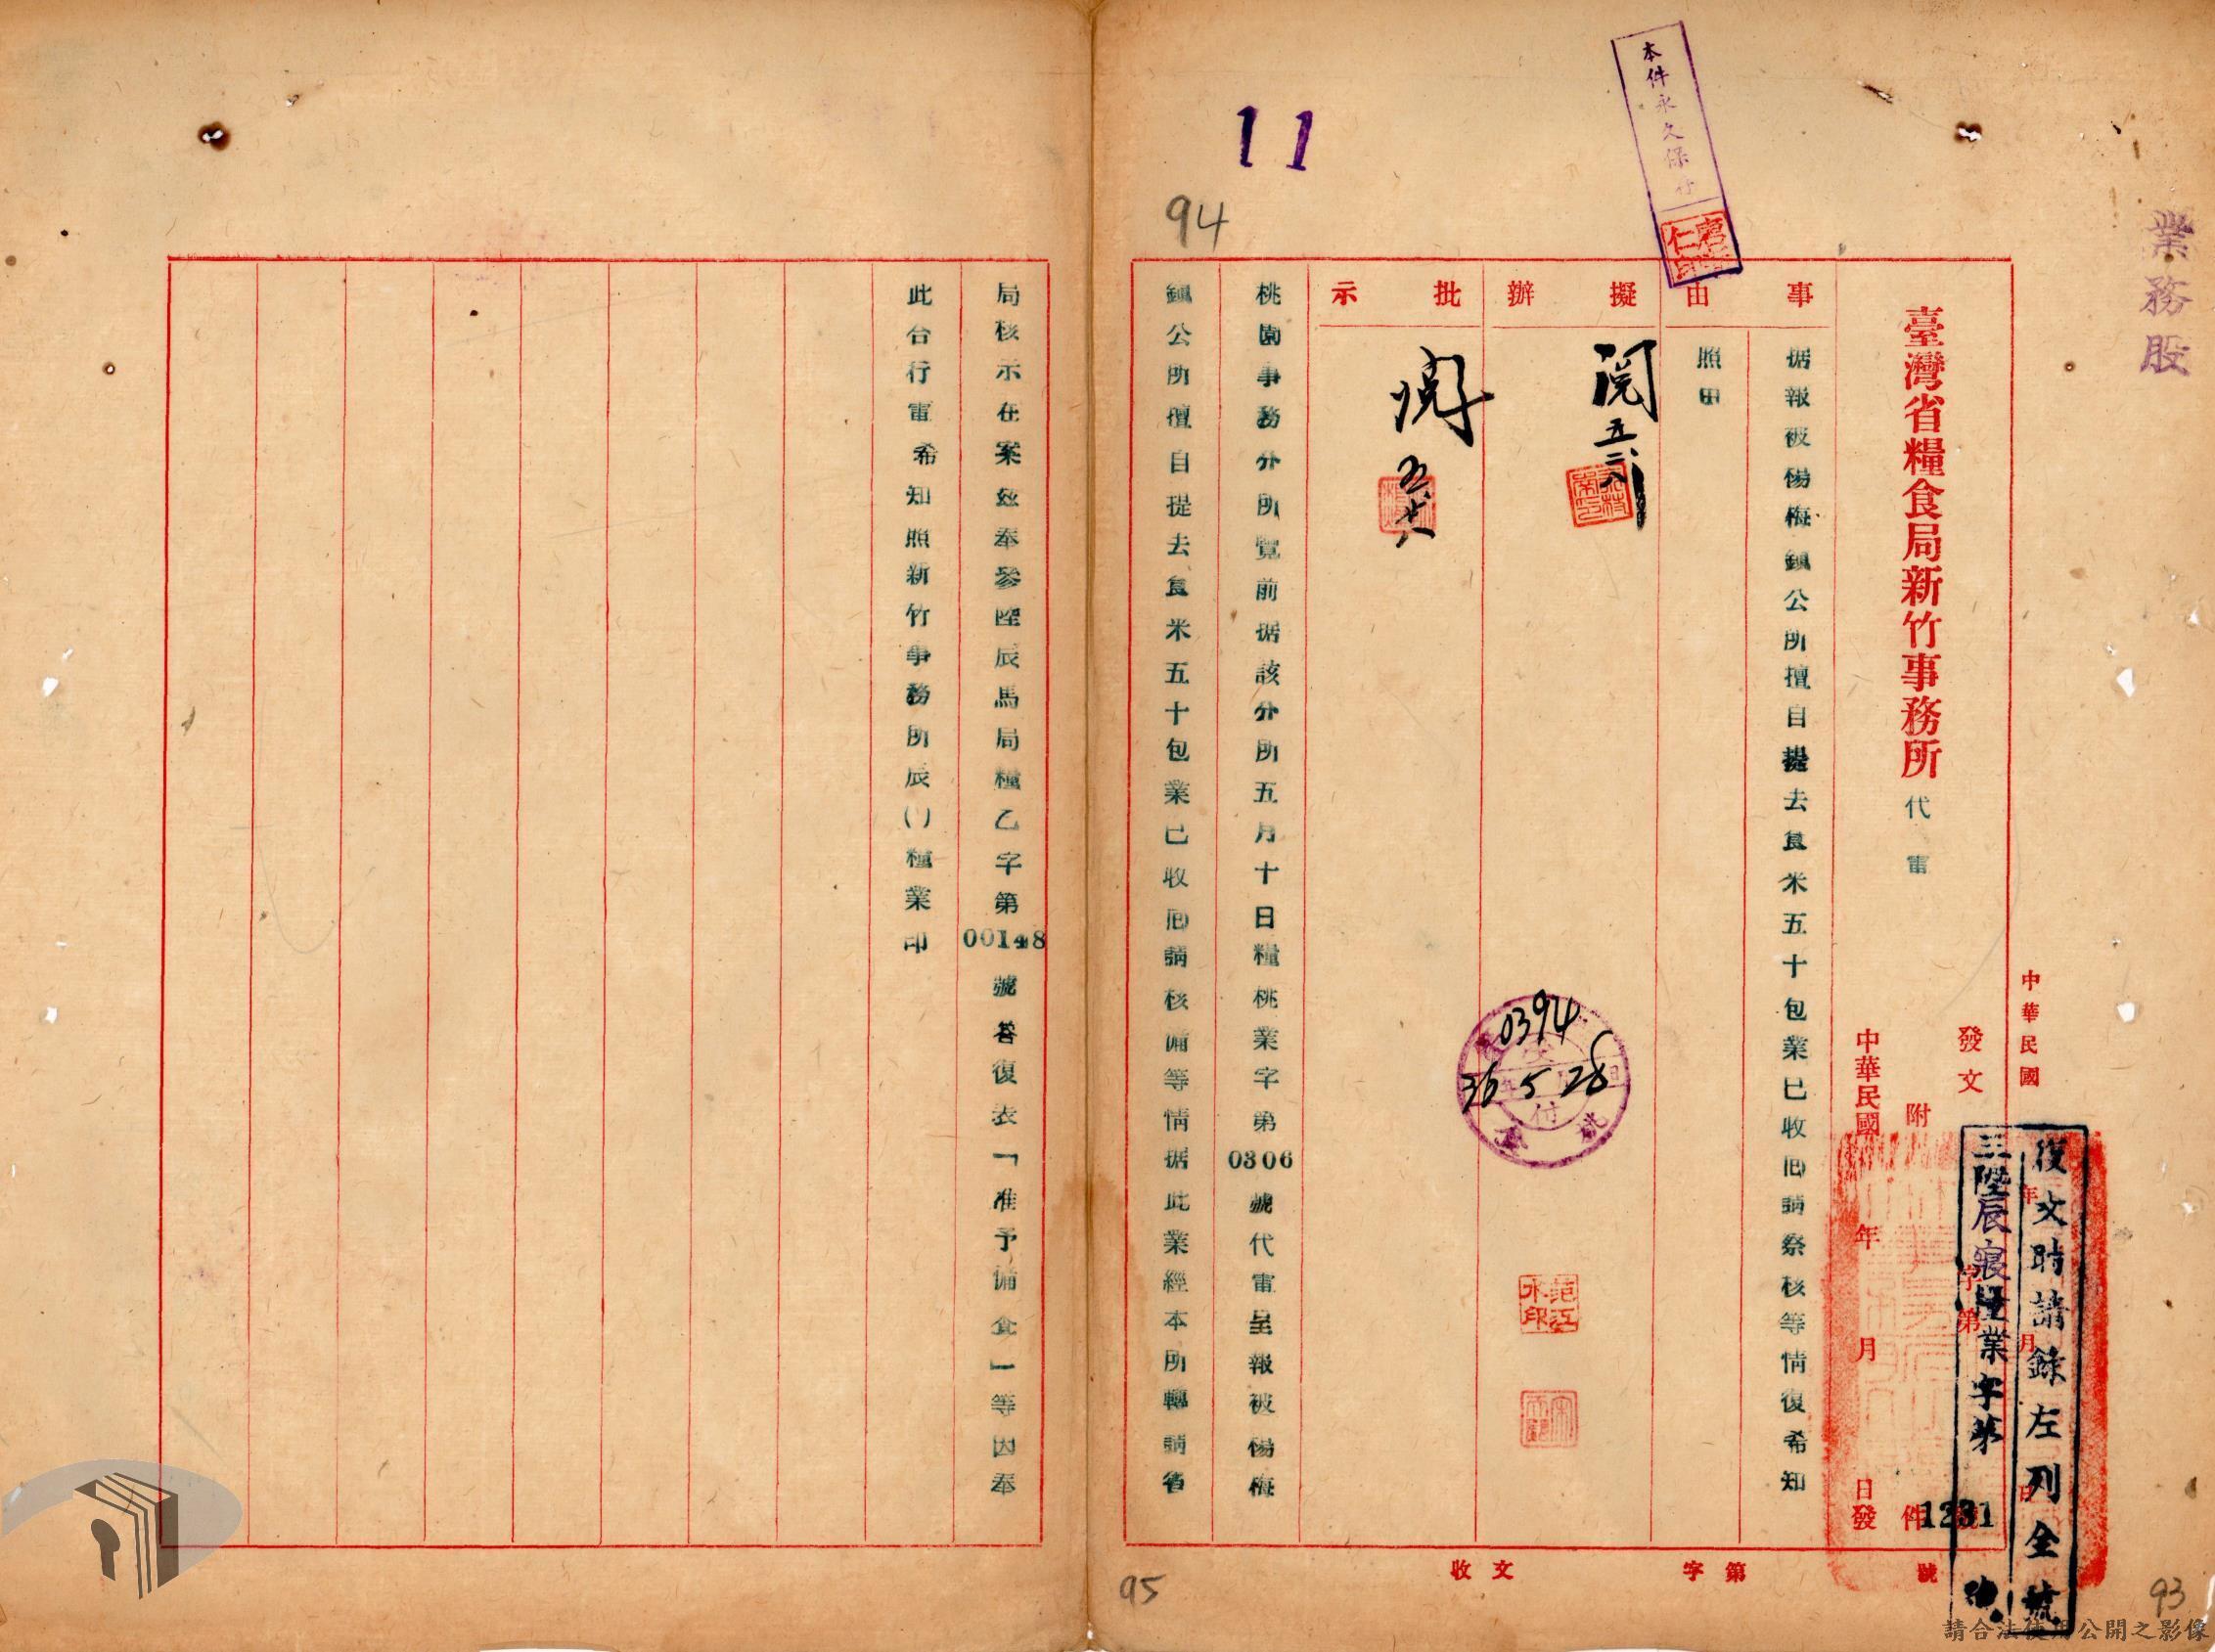 業務股
本件永久保存
11
94
臺灣省糧食局新竹事務所 代電
中華民國 年 月 日
發文 字第 號
附 件
中華民國 年 月 日發
復文時請錄左列全號
三陸辰寢糧業字第
1231
事由
据報被楊梅鎮公所擅自提去食米五十包業已收回請察核等情復希知
照由
擬辦
閱 五、二八
批示
閱 五、廿八
0394
36 5 28
范江水印
桃園事務分所覽前据該分所五月十日糧桃業字第0306號代電呈報被楊梅
鎮公所擅自提去食米五十包業已收回請核備等情据此業經本所轉請省
局核示在案玆奉參陸辰馬局糧乙字第00148號答復表「准予備查」等因奉
此合行電希知照新竹事務所辰()糧業印
收文 字第 號
95
93
請合法使用公開之影像